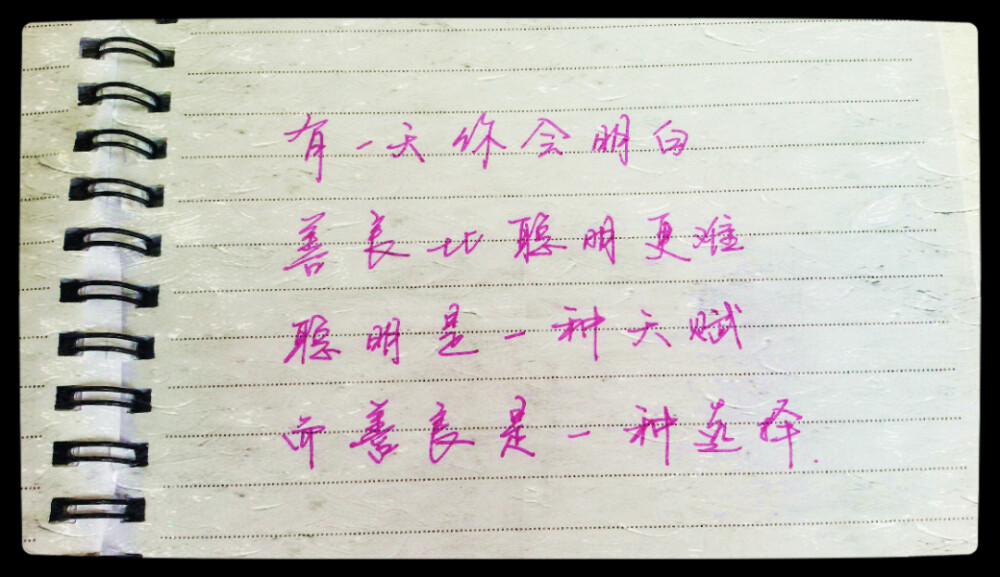 有一天你会明白
善良比聪明更难
聪明是一种天赋
而善良是一种选择.